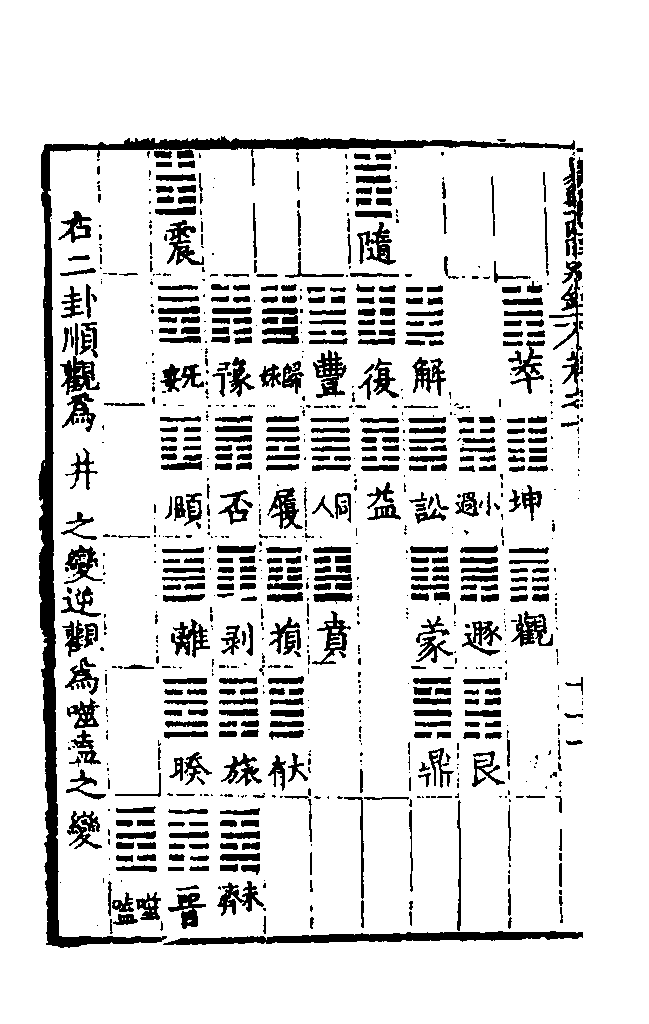 隨 震
萃 解 復 豐 歸妹 豫 无妄
坤 小過 訟 益 同人 履 否 頤
觀 遯 蒙 賁 損 剥 離
艮 鼎 大有 旅 睽
未濟 晉 噬嗑
右二卦順觀為井之變逆觀為噬嗑之變